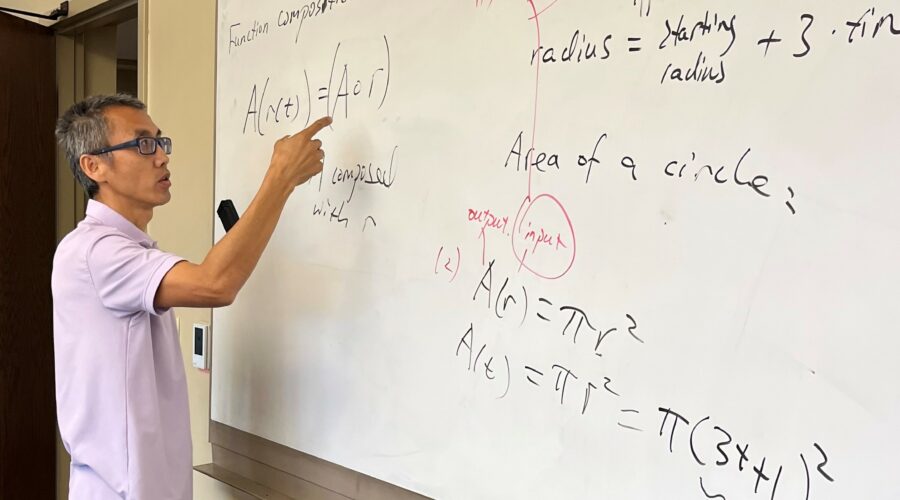 Function composit
A(r(t)) = (A∘r)
A composed
with r
radius = starting radius + 3 · tim
Area of a circle:
output. input
(2)
A(r) = πr²
A(t) = πr² = π(3t+1)²